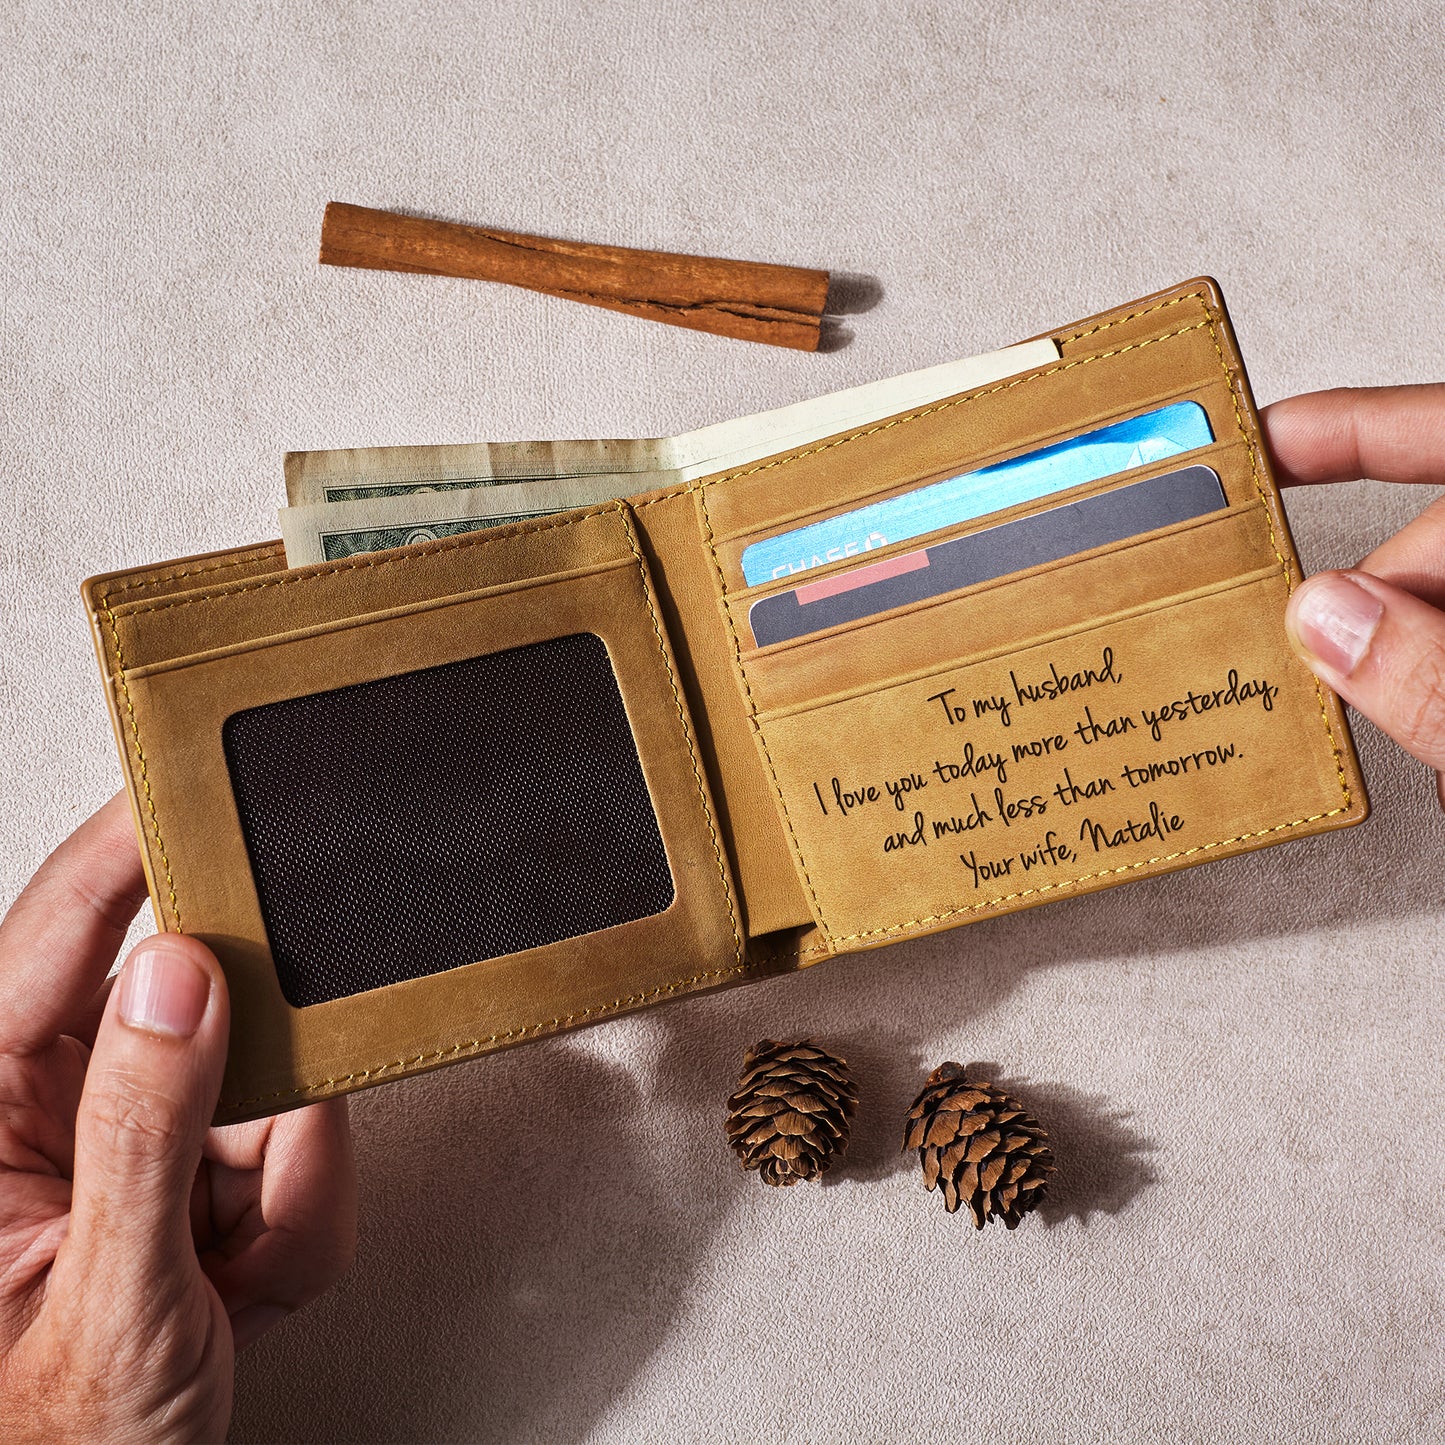 CHASE
To my husband,
I love you today more than yesterday,
and much less than tomorrow.
Your wife, Natalie